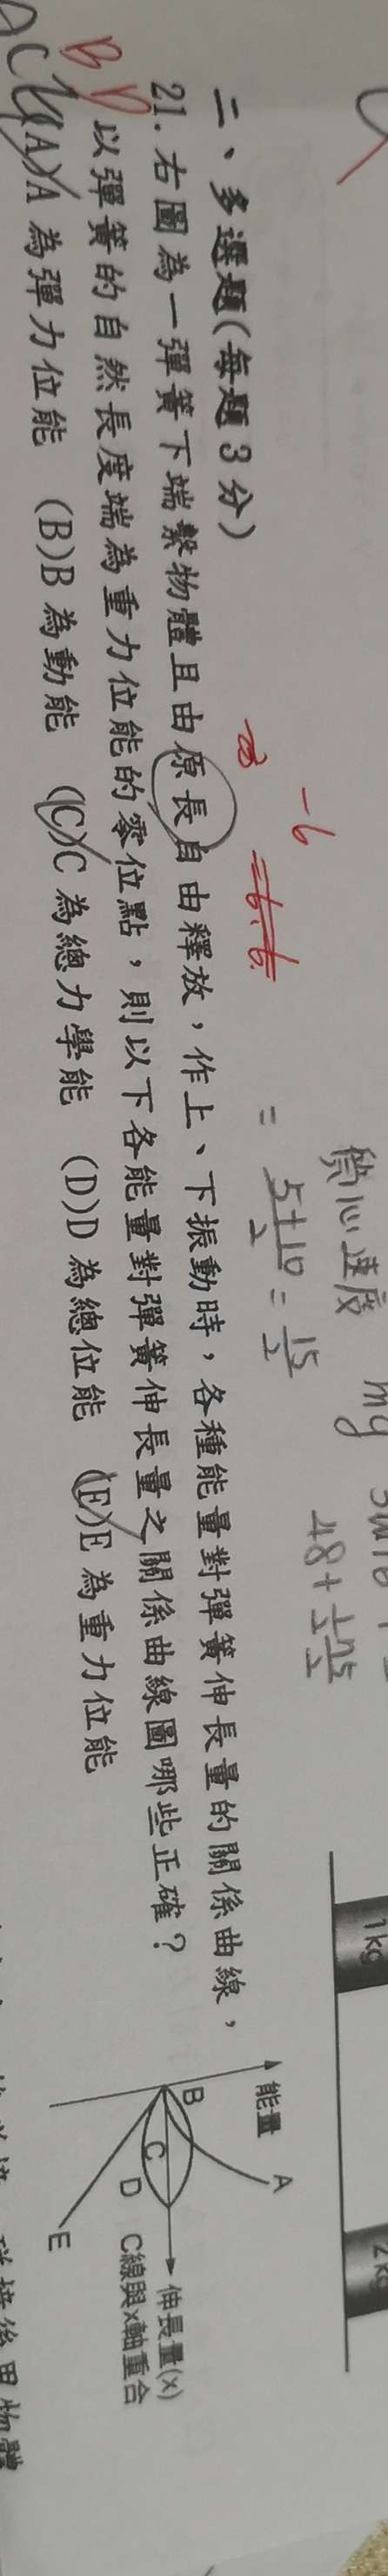 -6
二、多選題(每題3分)
21.右圖為一彈簧下端繫物體且由原長自由釋放，作上、下振動時，各種能量對彈簧伸長量的關係曲線，
以彈簧的自然長度端為重力位能的零位點，則以下各能量對彈簧伸長量之關係曲線圖哪些正確？
(A)A為彈力位能 (B)B為動能 (C)C為總力學能 (D)D為總位能 (E)E為重力位能
BD
質心速度
mg
= 5+10/2 = 15/2
1kg
2kg
能量
A
B
C
D
E
伸長量(x)
C線與x軸重合